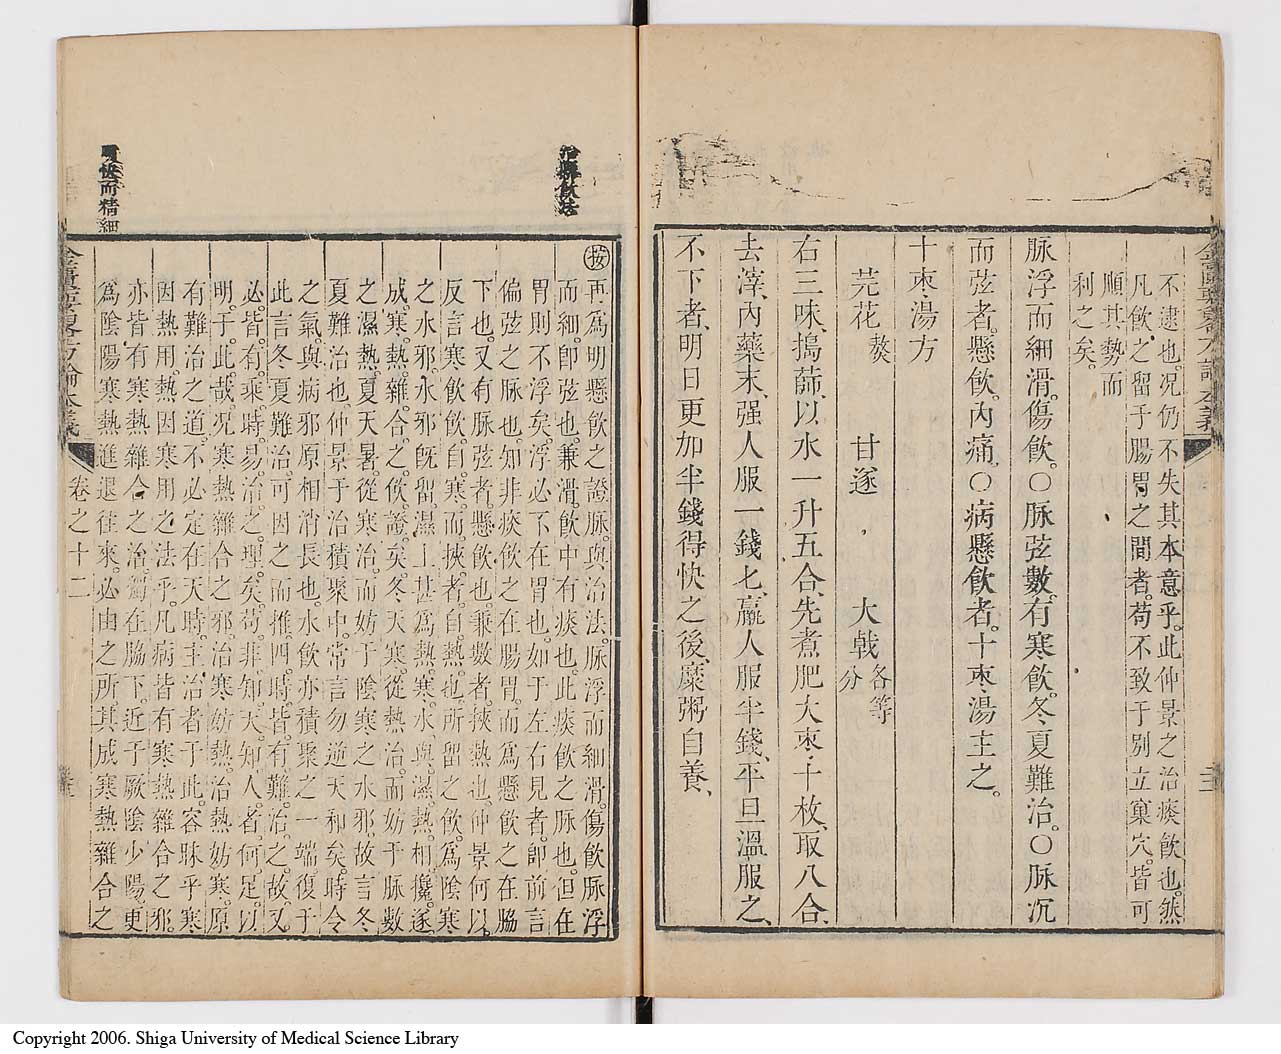 不逮也。况仍不失其本意乎。此仲景之治痰飲也。然
凡飲之留于腸胃之間者。苟不致于別立窠穴。皆可
順其勢而
利之矣。
脉浮而細滑。傷飲。〇脉弦數。有寒飲。冬夏難治。〇脉沉
而弦者。懸飲。內痛。〇病懸飲者。十棗湯主之。
十棗湯方
芫花 熬 甘遂 大戟 各等分
右三味、搗篩、以水一升五合、先煮肥大棗十枚、取八合、
去滓、內藥末、强人服一錢匕、羸人服半錢、平旦溫服之、
不下者、明日更加半錢、得快之後、糜粥自養、
治懸飲法
按再爲明懸飲之證脉。與治法。脉浮而細滑。傷飲脉浮
而細。卽弦也。兼滑。飲中有痰也。此痰飲之脉也。但在
胃則不浮矣。浮必不在胃也。如于左右見者。卽前言
偏弦之脉也。知非痰飲之在腸胃。而爲懸飲之在脇
下也。又有脉弦者。懸飲也。兼數者。挾熱也。仲景何以
反言寒飲。飲自寒。而挾者。自熱也。所留之飲。爲陰寒
之水邪。水邪旣留。濕上甚爲熱。寒水與濕熱。相攙。遂
成寒熱雜合之飲證矣。冬天寒。從熱治。而妨于脉數
之濕熱。夏天暑。從寒治。而妨于陰寒之水邪。故言冬
夏難治也。仲景于治積聚中。常言勿逆天和矣。時令
之氣。與病邪原相消長也。水飲亦積聚之一端。復于
此言冬夏難治。可因之而推四時。皆有難治之故。又
必皆有乘時易治之理矣。苟非知天知人者。何足以
明于此哉。况寒熱雜合之邪。治寒妨熱。治熱妨寒。原
有難治之道。不必定在天時。主治者于此。容昧乎寒
因熱用。熱因寒用之法乎。凡病皆有寒熱雜合之邪。
亦皆有寒熱雜合之治。獨在脇下。近于厥陰少陽。更
爲陰陽寒熱進退往來。必由之所。其成寒熱雜合之
而精細
卷之十二